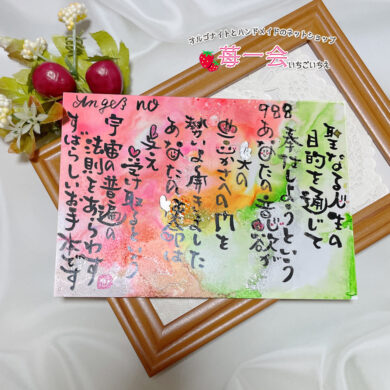 オルゴナイトとハンドメイドのネットショップ
苺一会 いちごいちえ
Angel's no
988
聖なる人生の
目的を通じて
奉仕しようという
あなたの意欲が
天の
豊かさへの門を
勢いよく開きました
あなたの使命は
与え
受け取るという
宇宙の普遍の
法則をあらわす
すばらしいお手本です